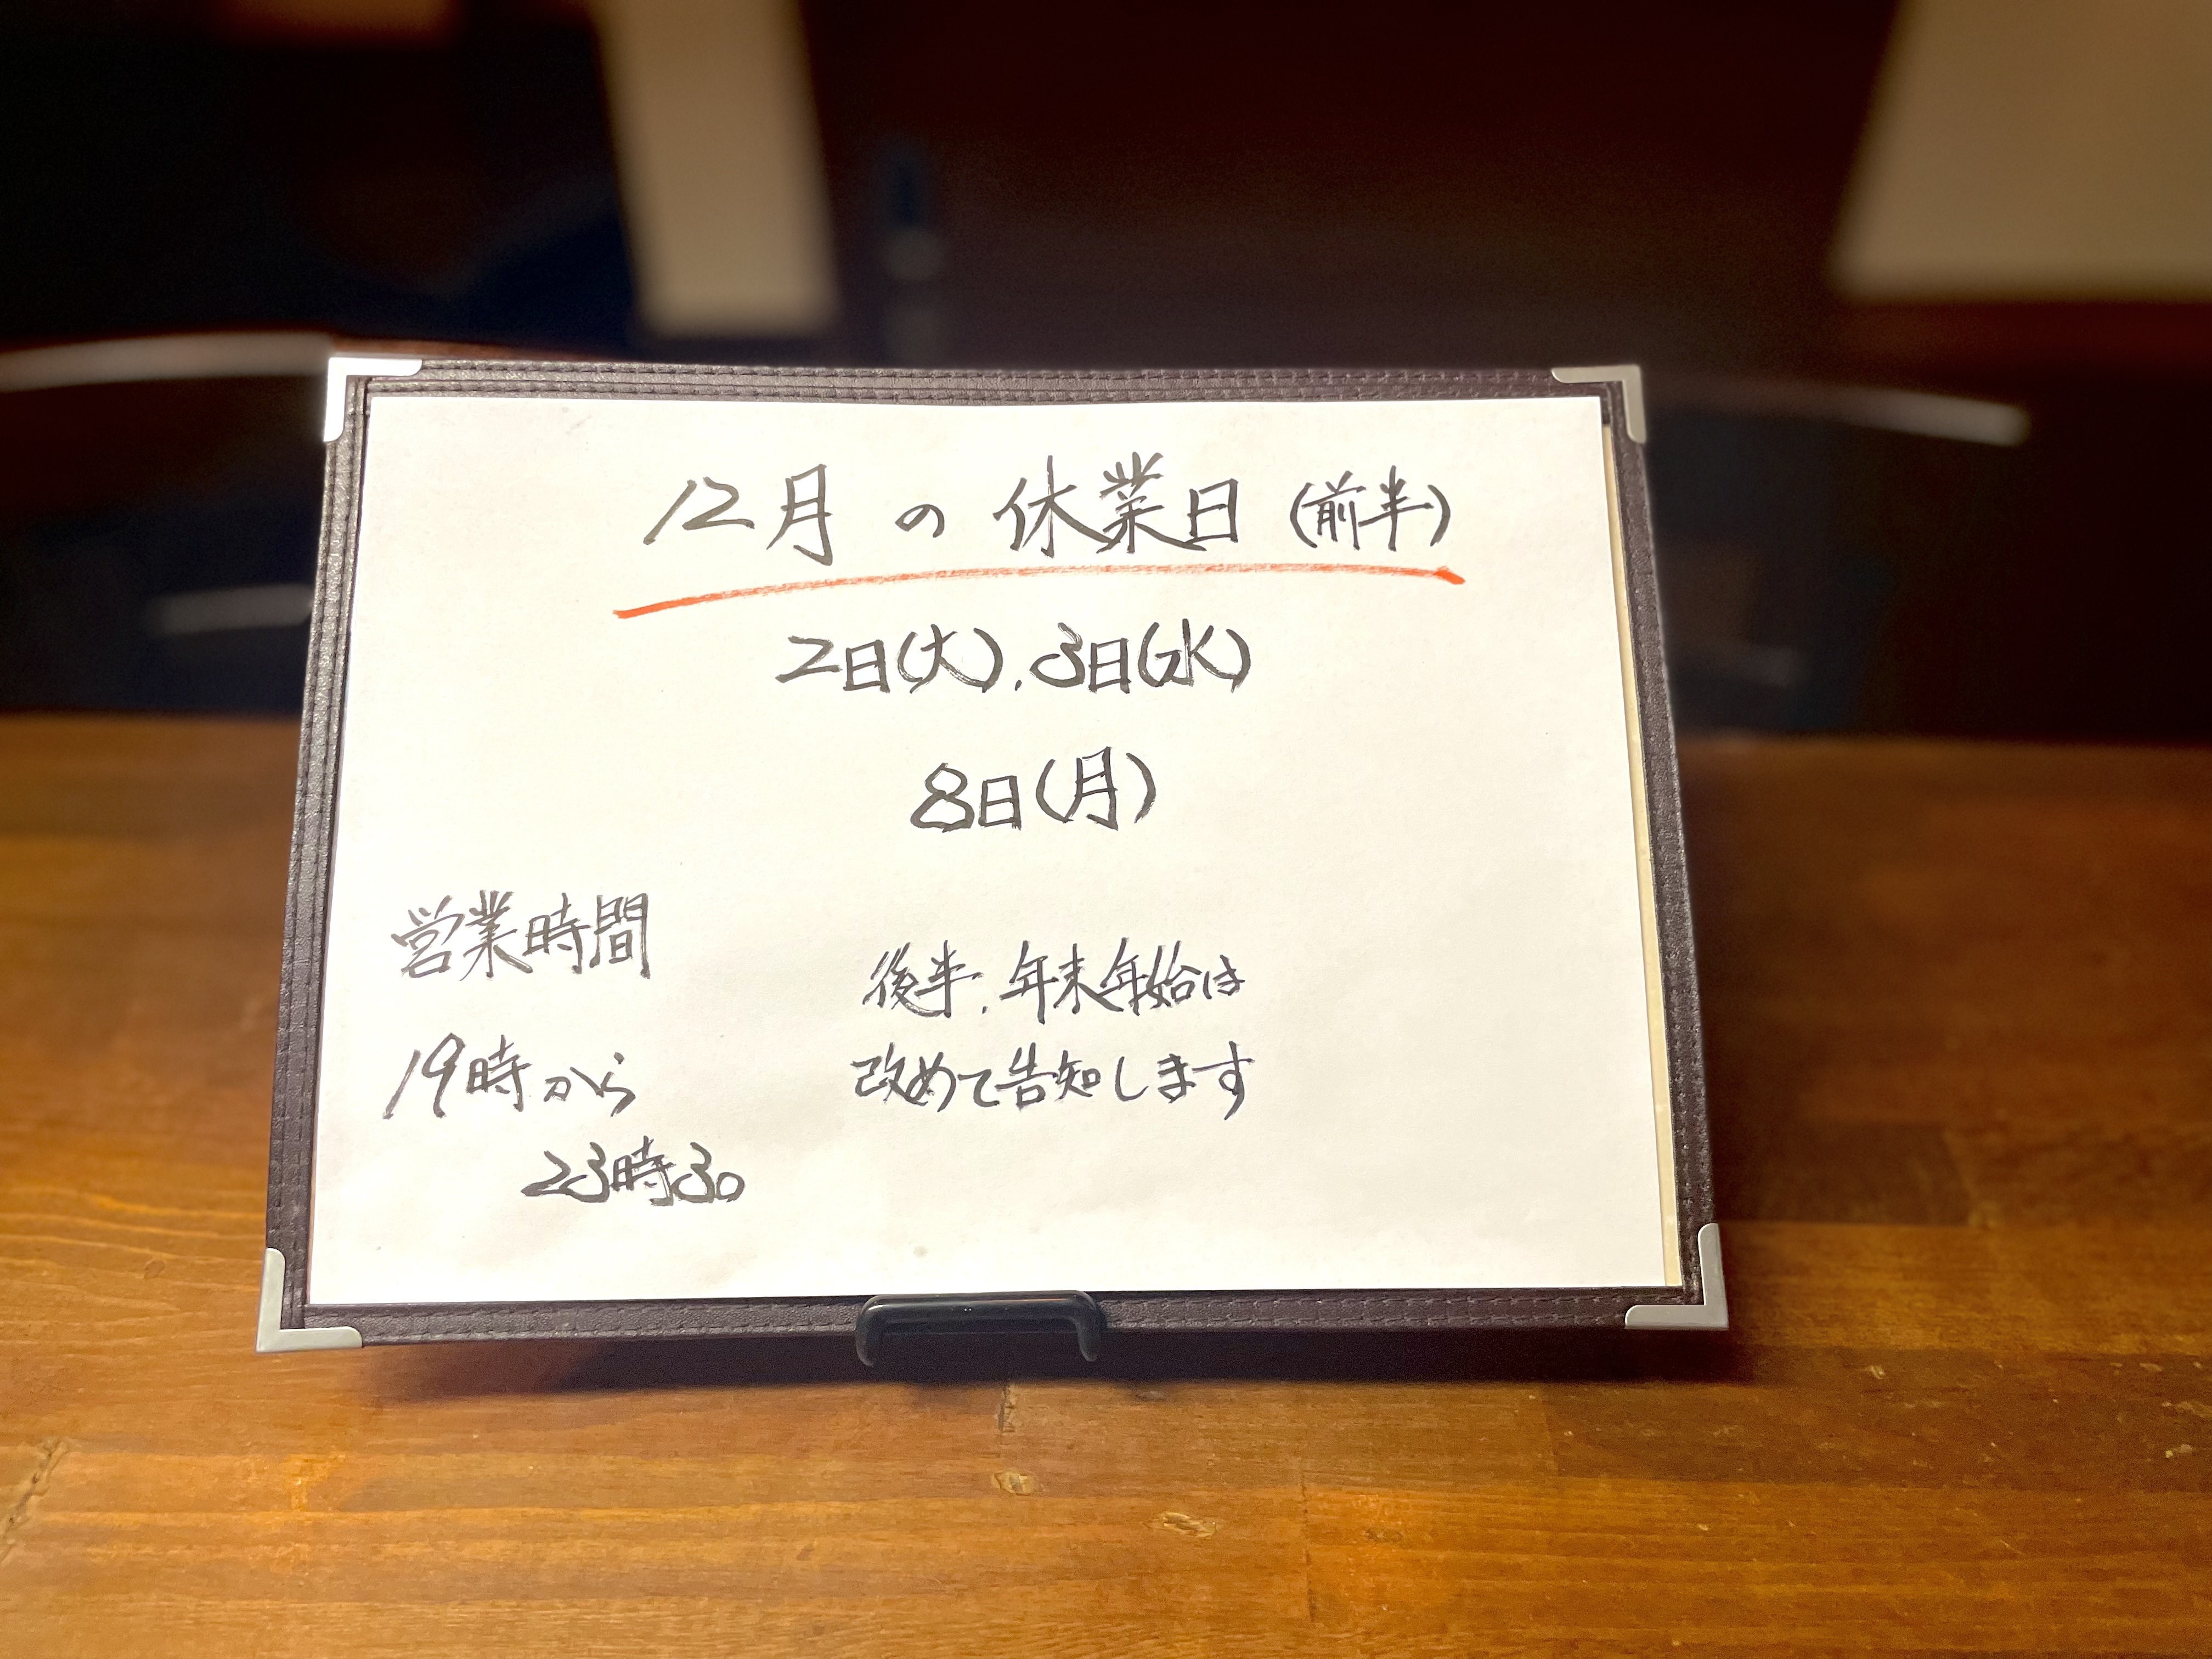 12月の休業日(前半)
2日(火).3日(水)
8日(月)
営業時間
19時から
23時30
後半.年末年始は
改めて告知します